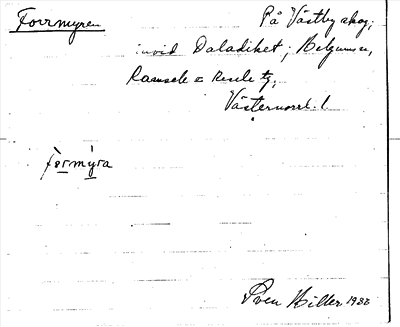 Forrmyren
På Västby skog;
invid Daladiket; Helgumsn,
Ramsele = Resele tg,
Västernorrl. l.
fòrmỳra
Sven Hiller 1932